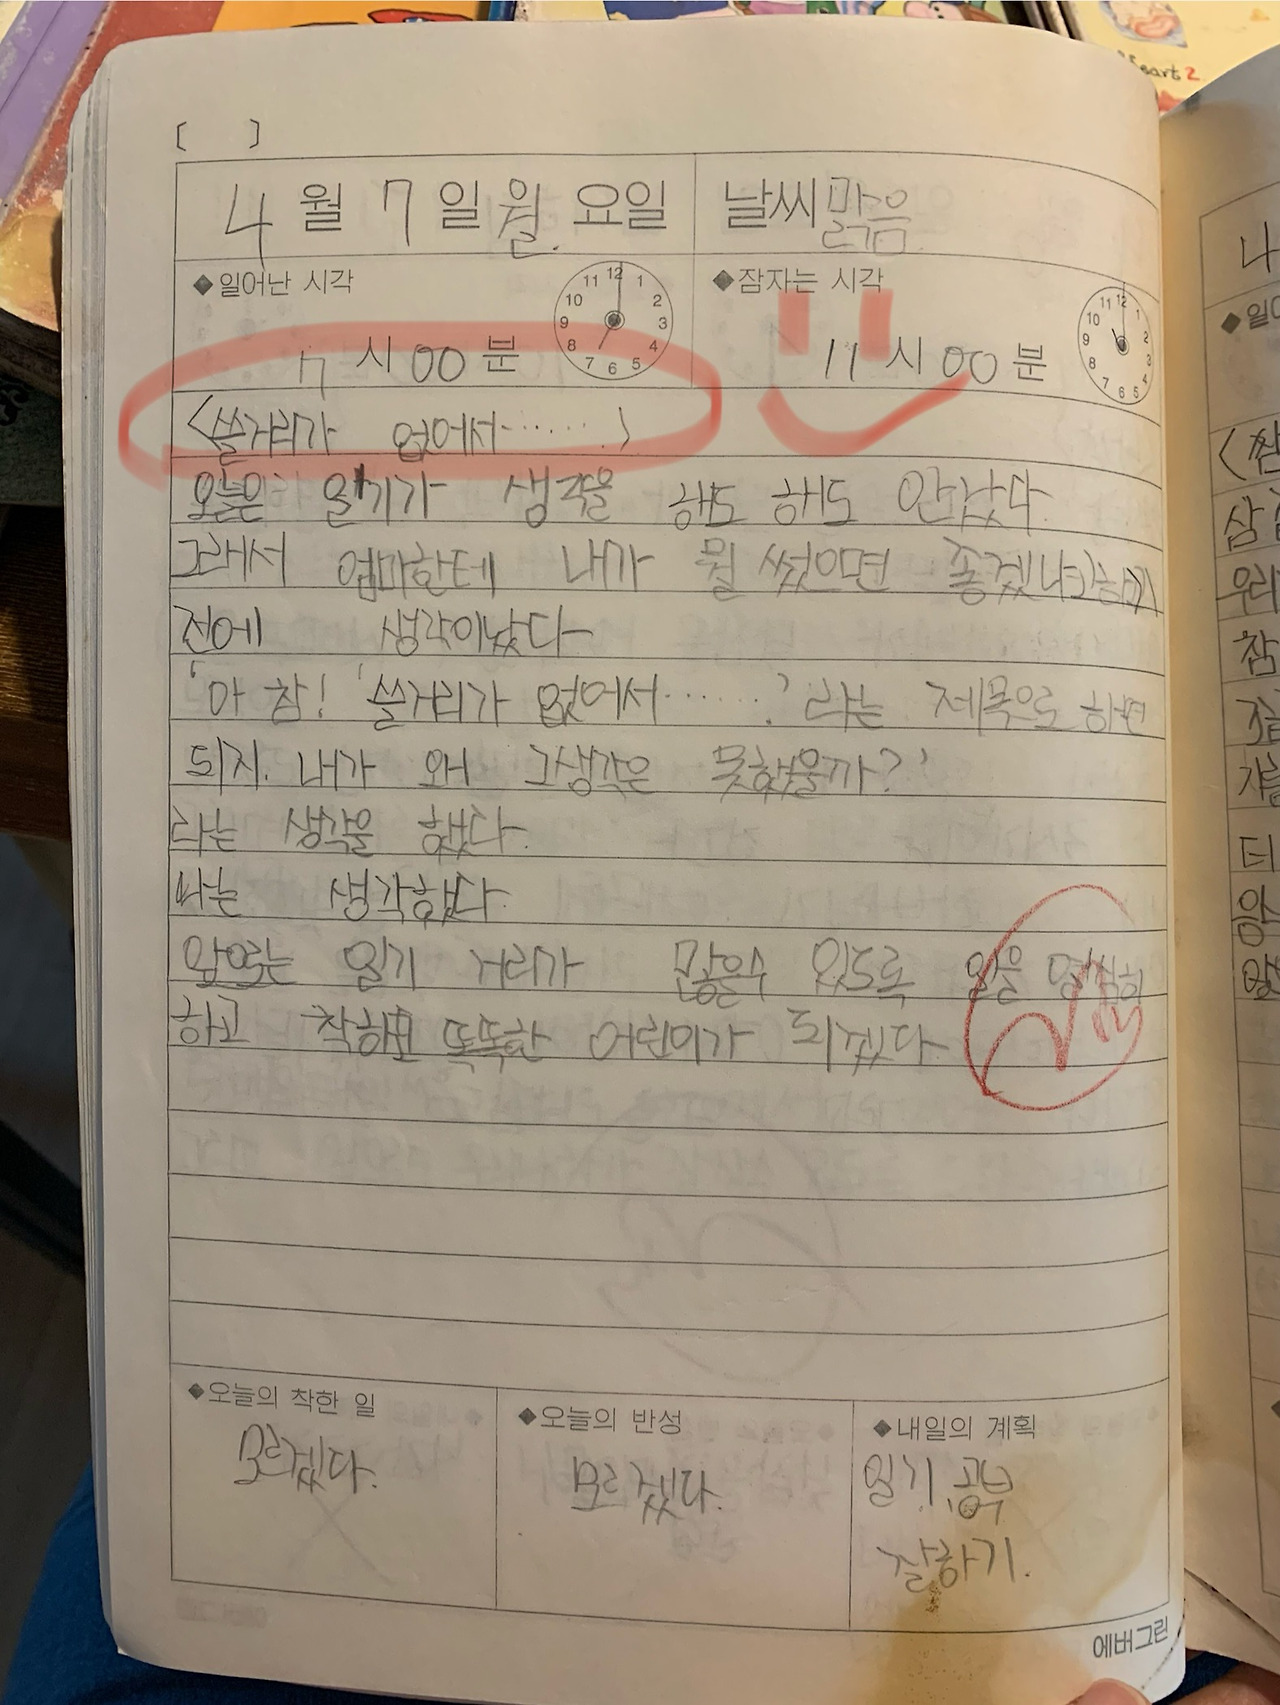 [ ]
4월 7일 월요일 날씨 맑음
◆일어난 시각 ◆잠자는 시각
7시 00분 11시 00분
<쓸거리가 없어서.......>
오늘은 일기가 생각을 해도 해도 안났다.
그래서 엄마한테 내가 뭘 썼으면 좋겠냐고하기
전에 생각이났다.
'아 참! '쓸거리가 없어서.......' 라는 제목으로 하면
되지. 내가 왜 그생각은 못했을까?'
라는 생각을 했다.
나는 생각했다.
앞으로는 일기 거리가 많을수 있도록 일을 열심히
하고 착하고 똑똑한 어린이가 되겠다.
◆오늘의 착한 일 ◆오늘의 반성 ◆내일의 계획
모르겠다. 모르겠다. 일기, 공부
잘하기.
에버그린